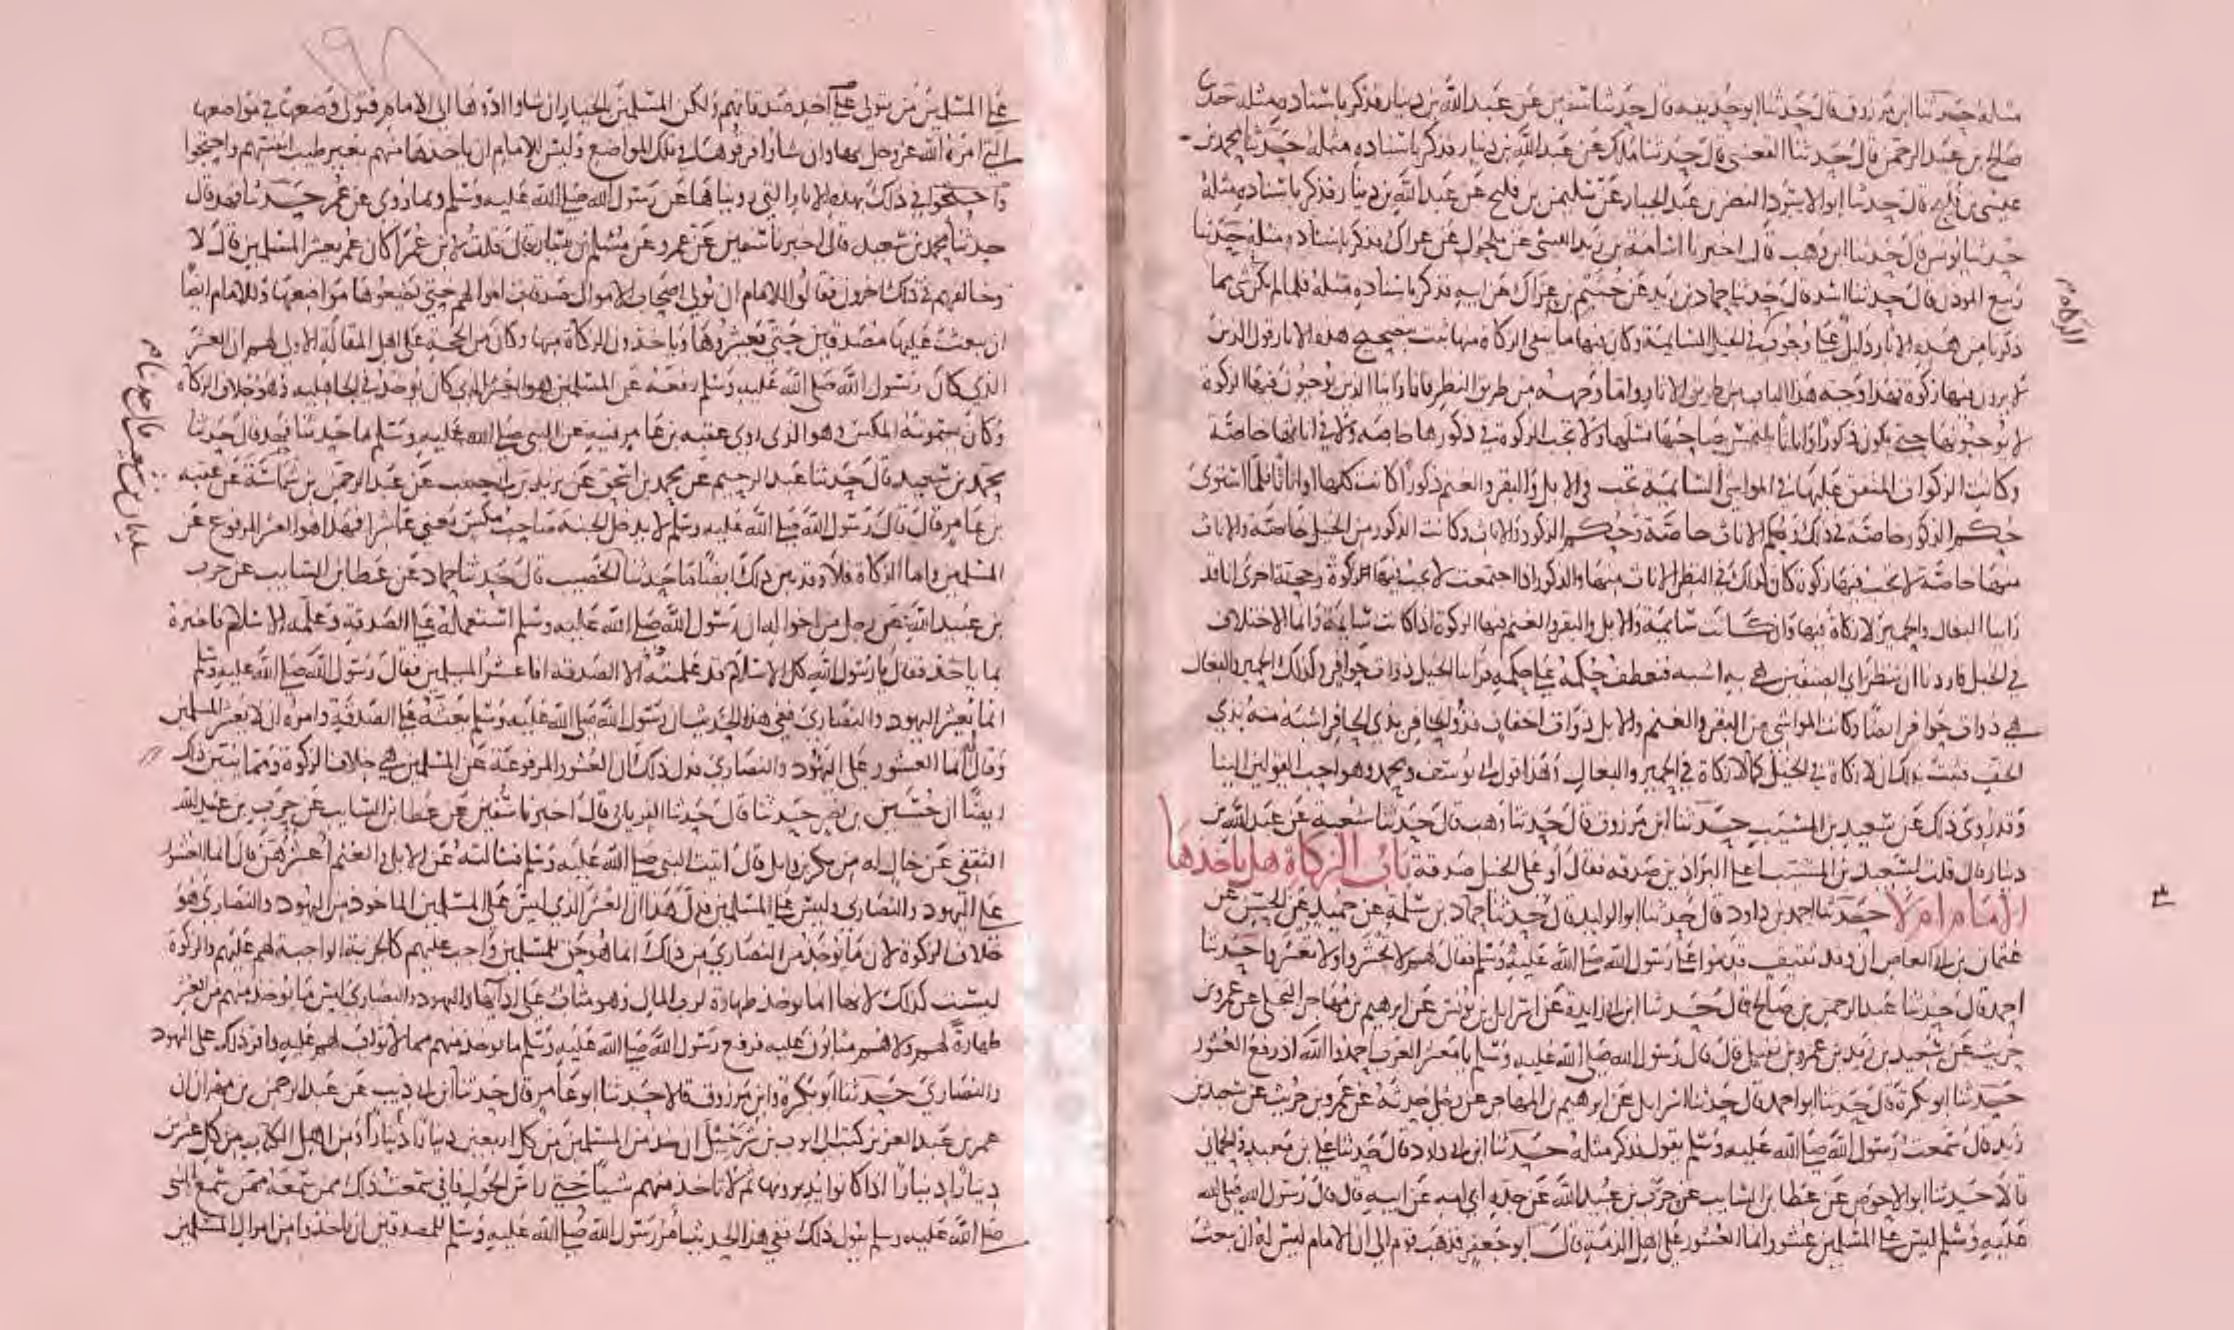 مثله حدثنا ابن مرزوق قال حدثنا ابو حذيفه قال حدثنا سفين عن عبد الله بن دينار فذكر باسناده مثله حدثنا
صالح بن عبد الرحمن قال حدثنا القعنبي قال حدثنا مالك عن عبد الله بن دينار فذكر باسناده مثله حدثنا محمد بن
عيسى بن فليح قال حدثنا ابو الاسود النضر بن عبد الجبار عن سليمن بن فليح عن عبد الله بن دينار فذكر باسناده مثله
حدثنا يونس قال حدثنا ابن وهب قال اخبرنا اسامة بن زيد الليثى عن مكحول عن عراك فذكر باسناده مثله حدثنا
ربيع المودن قال حدثنا اسد قال حدثنا حماد بن زيد عن خثيم بن عراك عن ابيه فذكر باسناده مثله فلما لم يكن فى شى مما
ذكرنا من هذه الاثار دليل على وجوب في الخيل السايمة وكان فيها ما ينفى الزكاة منها ثبت بتصحيح هذه الاثار قول الذين
لا يرون فيها زكوة فهذا وجه هذا الباب من طريق الاثار واما وجهه من طريق النظر فانا راينا الذين يوجبون فيها الزكوة
لا يوجبونها حتى يكون ذكورا واناثا يلتمس صاحبها نسلها ولا تجب الزكوة في ذكورها خاصه ولا في اناثها خاصة
وكانت الزكوات المتفق عليها في المواشى السايمة تجب في الابل والبقر والغنم ذكورا كانت كلها او اناثا فلما استوى
حكم الذكور خاصة في ذلك وحكم الاناث خاصة وحكم الذكور والاناث وكانت الذكور من الخيل خاصة والاناث
منها خاصة لا تجب فيها زكوة كان كذلك في النظر الاناث منها والذكور اذا اجتمعت لا تجب فيها زكوة وحجة اخرى انا قد
راينا البغال والحمير لا زكاة فيها وان كانت سايمة والابل والبقر والغنم فيها الزكوة اذا كانت سايمة وانما الاختلاف
في الخيل فاردنا ان ننظر اي الصنفين هي به اشبه فنعطف حكمه على حكمه فراينا الخيل ذوات حوافر وكذلك الحمير والبغال
هي ذوات حوافر ايضا وكانت المواشى من البقر والغنم والابل ذوات اخفاف فذو الحافر بذي الحافر اشبه منه بذي
الخف فثبت بذلك ان لا زكاة في الخيل كما لا زكاة في الحمير والبغال وهذا قول ابي يوسف ومحمد وهو احب القولين الينا
وقد روى ذلك عن سعيد بن المسيب حدثنا ابن مرزوق قال حدثنا وهب قال حدثنا شعبة عن عبد الله بن
دينار قال قلت لسعيد بن المسيب اعلى البراذين صدقه فقال أو على الخيل صدقة باب الزكاة هل ياخذها
الامام ام لا حدثنا احمد بن داود قال حدثنا ابو الوليد قال حدثنا حماد بن سلمة عن حميد عن الحسن عن
عثمان بن ابي العاص ان وفد ثقيف قدموا على رسول الله صلى الله عليه وسلم فقال لهم لا تحشروا ولا تعشروا حدثنا
احمد قال حدثنا عبد الرحمن بن صالح قال حدثنا ابن ابي زايدة عن اسرايل بن يونس عن ابرهيم بن مهاجر البجلى عن عمرو بن
حريث عن سعيد بن زيد بن عمرو بن نفيل قال قال رسول الله صلى الله عليه وسلم يا معشر العرب احمدوا الله اذ رفع العشور
حدثنا ابو بكرة قال حدثنا ابو احمد قال حدثنا اسرايل عن ابرهيم بن المهاجر عن رجل حدثه عن عمرو بن حريث عن سعيد بن
زيد قال سمعت رسول الله صلى الله عليه وسلم يقول فذكر مثله حدثنا ابن ابي داود قال حدثنا على بن معبد والحماني
قالا حدثنا ابو الاحوص عن عطا بن السايب عن حرب بن عبيد الله عن جده ابي امه عن ابيه قال قال رسول الله صلى الله
عليه وسلم ليس على المسلمين عشور انما العشور على اهل الذمة قال ابو جعفر فذهب قوم الى ان الامام ليس له ان يبعث
الزكاه
على المسلمين من يتولى على اخذ صدقاتهم ولكن المسلمين بالخيار ان شاوا ادوها الى الامام فتولى وضعها في مواضعها
التي امره الله عز وجل بها وان شاوا فرقوها في تلك المواضع وليس للامام ان ياخذها منهم بغير طيب انفسهم واحتجوا
واحتجوا في ذلك بهذه الاثار التي رويناها عن رسول الله صلى الله عليه وسلم وبما روى عن عمر حدثنا فهد قال
حدثنا محمد بن سعيد قال اخبرنا سفين عن عمرو عن مسلم بن يسار قال قلت لابن عمر اكان عمر يعشر المسلمين قال لا
وخالفهم في ذلك اخرون فقالوا للامام ان يولى اصحاب الاموال صدقات اموالهم حتى يضعوها مواضعها وللامام ايضا
ان يبعث عليها مصدقين حتى يعشروها وياخذون الزكاة منها وكان من الحجة على اهل المقالة الاولى لهم ان العشر
الذي كان رسول الله صلى الله عليه وسلم رفعه عن المسلمين هو العشر الذي كان يوخذ في الجاهليه وهو خلاف الزكاة
وكان يسمونه المكس وهو الذى روى عقبه بن عامر فيه عن النبى صلى الله عليه وسلم ما حدثنا فهد قال حدثنا
محمد بن سعيد قال حدثنا عبد الرحيم عن محمد بن اسحق عن يزيد بن ابي حبيب عن عبد الرحمن بن شماسة عن عقبه
بن عامر قال قال رسول الله صلى الله عليه وسلم لا يدخل الجنة صاحب مكس يعنى عاشرا فهذا هو العشر المرفوع عن
المسلمين واما الزكاة فلا وقد بين ذلك ايضا ما حدثنا الخصيب قال حدثنا حماد عن عطا بن السايب عن حرب
بن عبيد الله عن رجل من اخواله ان رسول الله صلى الله عليه وسلم استعمله على الصدقة وعلمه الاسلام فاخبره
بما ياخذ فقال يا رسول الله كل الاسلام قد علمته الا الصدقه افاعشر المسلمين فقال رسول الله صلى الله عليه وسلم
انما يعشر اليهود والنصارى ففي هذا الحديث ان رسول الله صلى الله عليه وسلم بعثه على الصدقة وامره ان لا يعشر المسلمين
وقال انما العشور على اليهود والنصارى فدل ذلك ان العشور المرفوعة عن المسلمين هي خلاف الزكوة ومما يبين ذلك
ايضا ان حسين بن نصر حدثنا قال حدثنا الفريابى قال اخبرنا سفين عن عطا بن السايب عن حرب بن عبيد الله
الثقفى عن خال له من بكر بن وايل قال اتيت النبى صلى الله عليه وسلم فسالته عن الابل والغنم اعشرهن قال انما العشور
على اليهود والنصارى وليس على المسلمين فدل هذا ان العشر الذي ليس على المسلمين الماخوذ من اليهود والنصارى هو
خلاف الزكوة لان ما يوخذ من النصارى من ذلك انما هو حق للمسلمين واجب عليهم كالجزية الواجبة لهم عليهم والزكوة
ليست كذلك لانها انما يوخذ طهارة لرب المال وهو مثاب على ادائها واليهود والنصارى ليس ما يوخذ منهم من العشر
طهارة لهم ولا هم مثابون عليه فرفع رسول الله صلى الله عليه وسلم ما يوخذ منهم مما لا ثواب لهم عليه واقر ذلك على اليهود
والنصارى حدثنا ابو بكرة وابن مرزوق قالا حدثنا ابو عامر قال حدثنا ابن ابي ذيب عن عبد الرحمن بن مهران ان
عمر بن عبد العزيز كتب الى ايوب بن شرحبيل ان خذ من المسلمين من كل اربعين دينارا دينارا ومن اهل الكتاب من كل عشرين
دينارا دينارا اذا كانوا يديرونها ثم لا تاخذ منهم شيا حتى راس الحول فانى سمعت ذلك ممن سمعه ممن سمع النبى
صلى الله عليه وسلم يقول ذلك ففي هذا الحديث امر رسول الله صلى الله عليه وسلم للمصدقين ان ياخذوا من اموال المسلمين